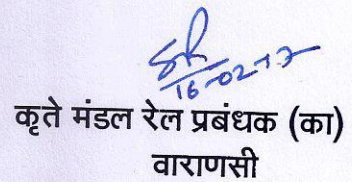 16-02-17
कृते मंडल रेल प्रबंधक (का)
वाराणसी